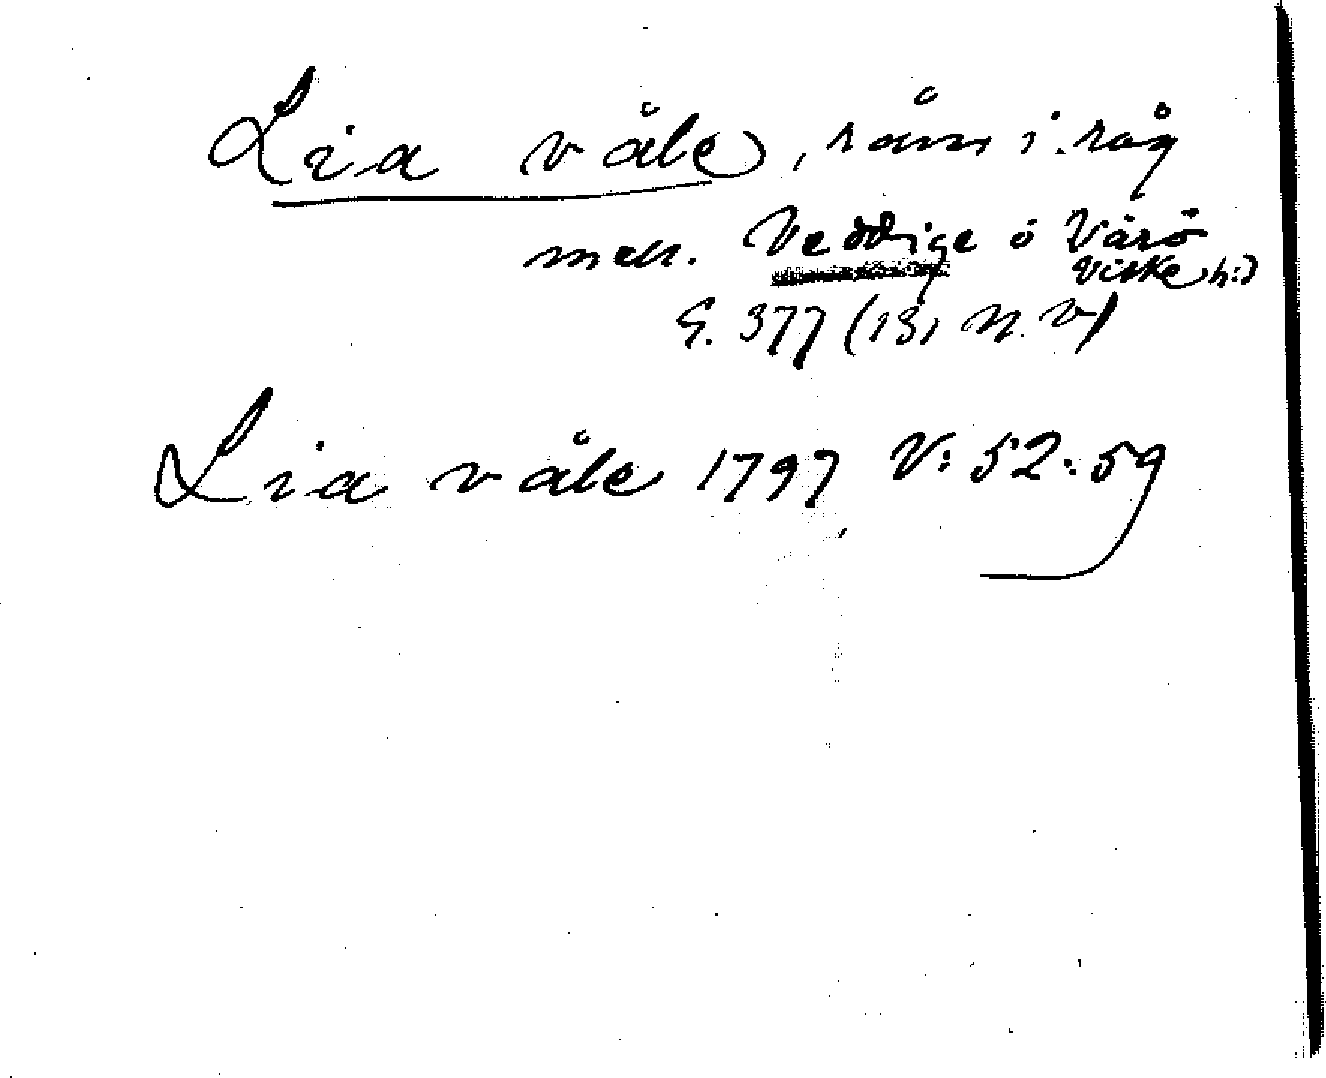 Lia våle, råm, i. råg
mell. Veddige o Värö
Viske h:d
G. 377 (13, N. V)
Lia våle 1797 V: 52: 59